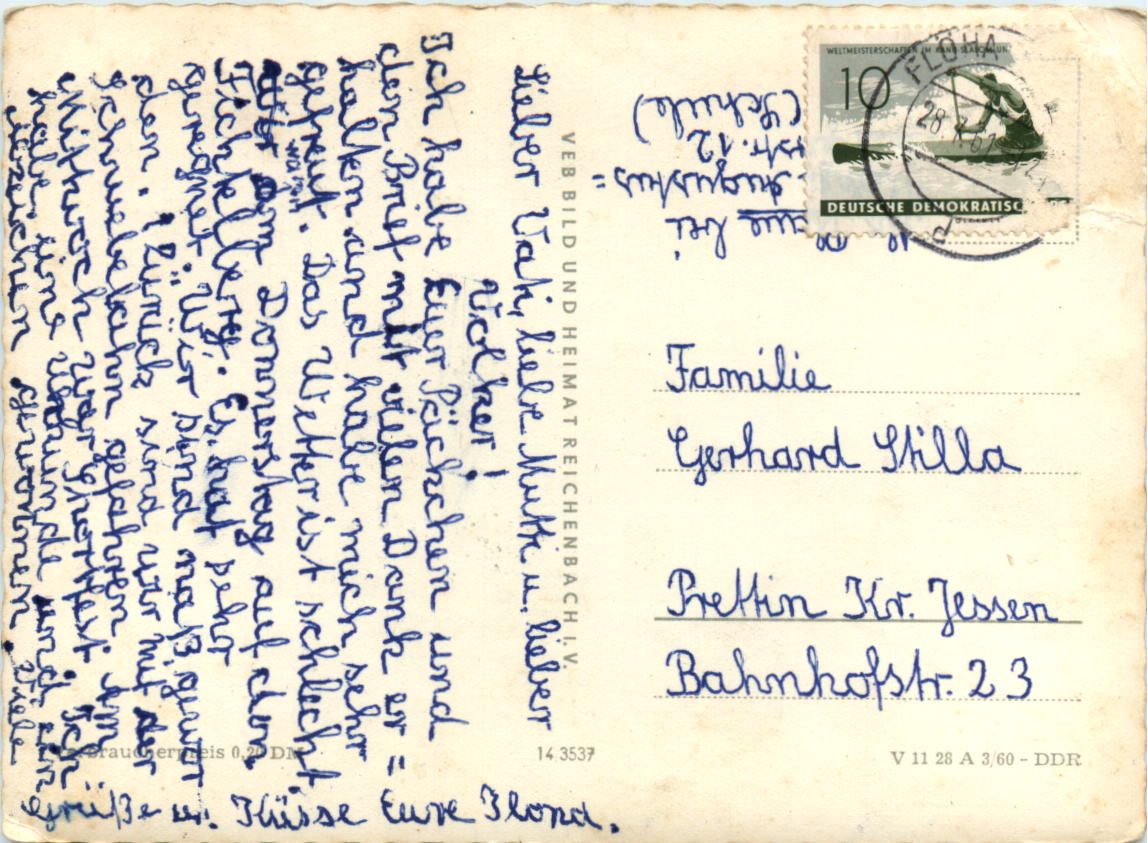 Lieber Vati, liebe Mutti u. lieber
Volker!
Ich habe Euer Päckchen und
den Brief mit vielen Dank er=
halten und habe mich sehr
gefreut. Das Wetter ist schlecht.
Am Donnerstag auf dem
waren
Fichtelberg. Es hat sehr
geregnet. Wir sind naß gewor
den. Zurück sind wir mit der
Schwebebahn gefahren. Am
Mittwoch war Sportfest. Ich
habe eine Urkunde und ein
Abzeichen gewonnen. Viele
Grüße u. Küsse Eure Ilona.
VEB BILD UND HEIMAT REICHENBACH I. V.
Verbraucherpreis 0,20 DM
14/3537
V 11 28 A 3/60 - DDR
bei
Augustus=
str. 12
(Schule)
WELTMEISTERSCHAFTEN IM KANU-SLALOM UN
10
DEUTSCHE DEMOKRATISC
FLÖHA
28
61
d
Familie
Gerhard Stilla
Prettin Kr. Jessen
Bahnhofstr. 23